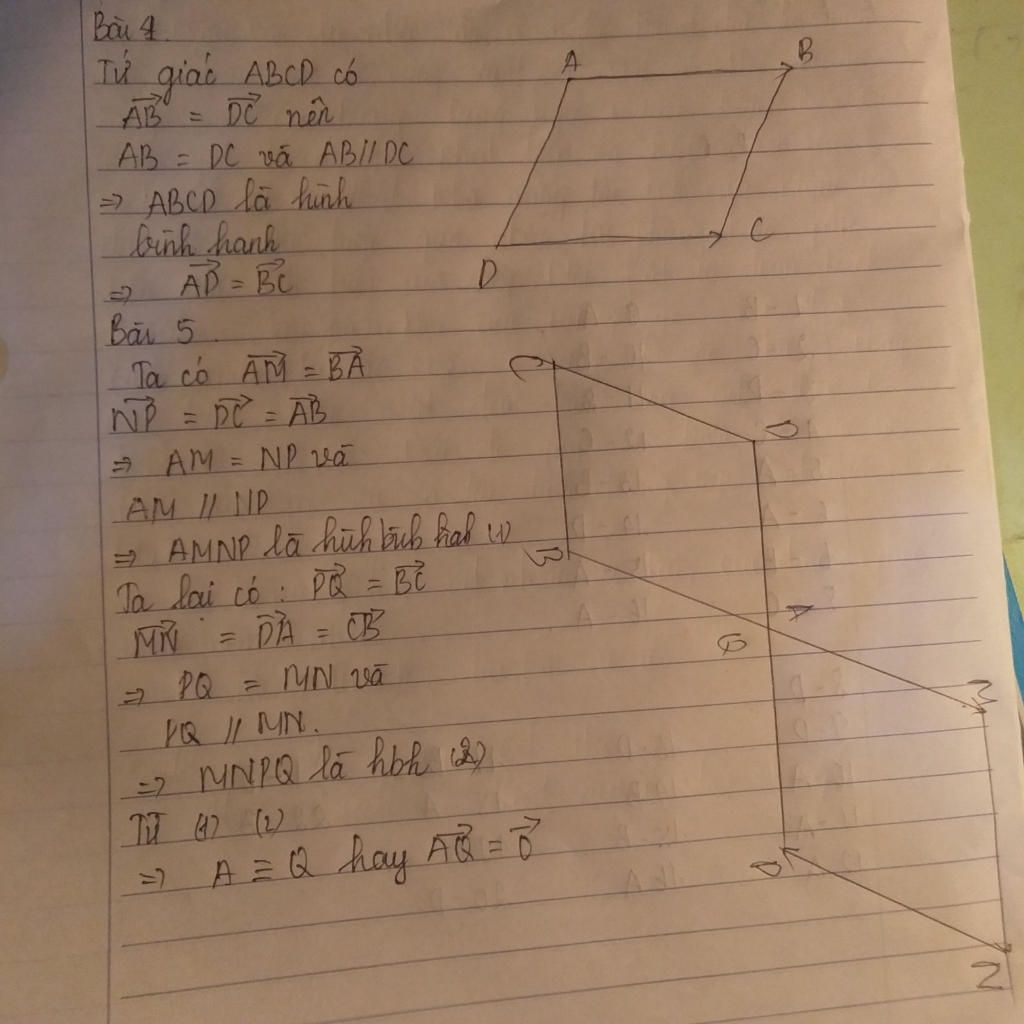 Bài 4.
Tứ giác ABCD có
$\overrightarrow{AB} = \overrightarrow{DC}$ nên
AB = DC và AB // DC
⇒ ABCD là hình
bình hanh
⇒ $\overrightarrow{AD} = \overrightarrow{BC}$
Bài 5.
Ta có $\overrightarrow{AM} = \overrightarrow{BA}$
$\overrightarrow{NP} = \overrightarrow{DC} = \overrightarrow{AB}$
⇒ AM = NP và
AM // NP
⇒ AMNP là hình bình hah (1)
Ta lại có : $\overrightarrow{PQ} = \overrightarrow{BC}$
$\overrightarrow{MN} = \overrightarrow{DA} = \overrightarrow{CB}$
⇒ PQ = MN và
PQ // MN.
⇒ MNPQ là hbh (2)
Từ (1) (2)
⇒ A ≡ Q hay $\overrightarrow{AQ} = \overrightarrow{0}$
A
B
C
D
C
D
B
A
Q
M
P
N